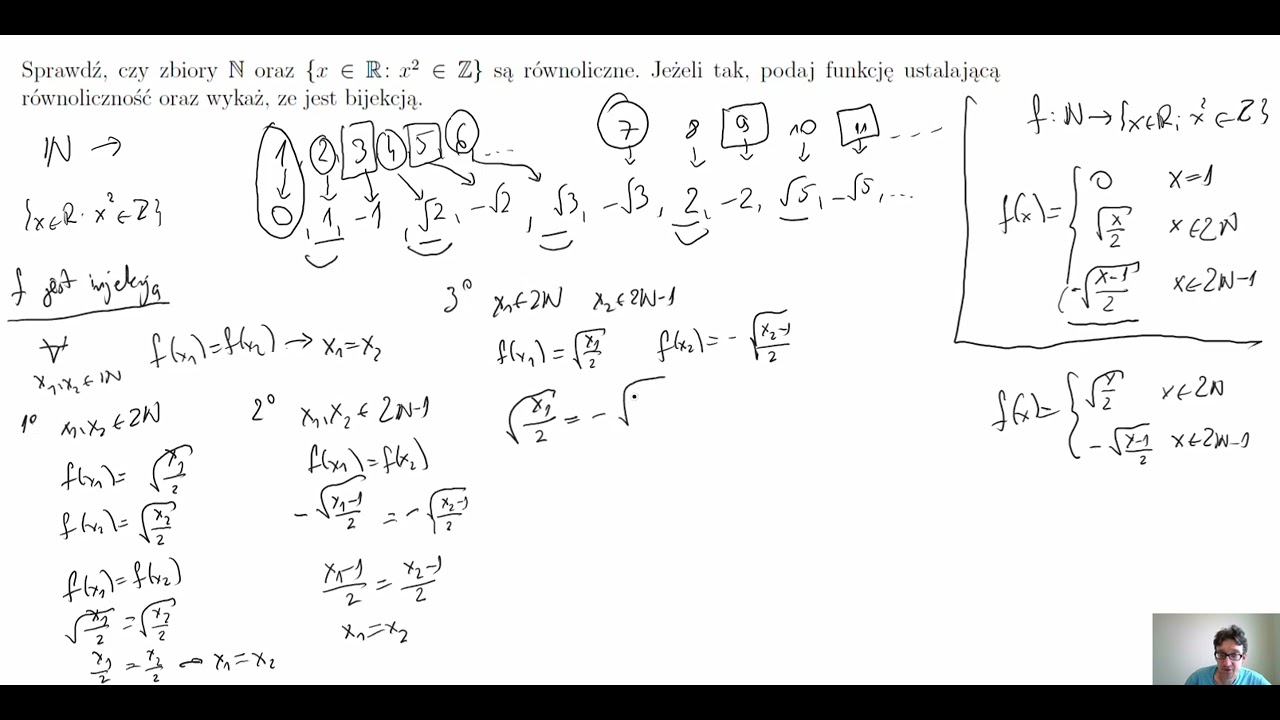 Sprawdź, czy zbiory ℕ oraz {x ∈ ℝ: x² ∈ ℤ} są równoliczne. Jeżeli tak, podaj funkcję ustalającą
równoliczność oraz wykaż, ze jest bijekcją.
ℕ →
{x∈ℝ: x²∈ℤ}
1, 2, 3 4 5 6 ... 7 8 9 10 11 ....
0, 1, -1 √2, -√2, √3, -√3, 2, -2, √5, -√5, ...
f: ℕ → {x∈ℝ: x²∈ℤ}
f(x) = { 0 x=1
√(x/2) x∈2ℕ
-√((x-1)/2) x∈2ℕ-1
f(x) = { √(x/2) x∈2ℕ
-√((x-1)/2) x∈2ℕ-1
f jest injekcją
∀ x₁,x₂∈ℕ f(x₁)=f(x₂) → x₁=x₂
1° x₁,x₂∈2ℕ
f(x₁) = √(x₁/2)
f(x₂) = √(x₂/2)
f(x₁)=f(x₂)
√(x₁/2) = √(x₂/2)
x₁/2 = x₂/2 → x₁=x₂
2° x₁,x₂∈2ℕ-1
f(x₁)=f(x₂)
-√((x₁-1)/2) = -√((x₂-1)/2)
(x₁-1)/2 = (x₂-1)/2
x₁=x₂
3° x₁∈2ℕ x₂∈2ℕ-1
f(x₁)=√(x₁/2) f(x₂)=-√((x₂-1)/2)
√(x₁/2) = -√